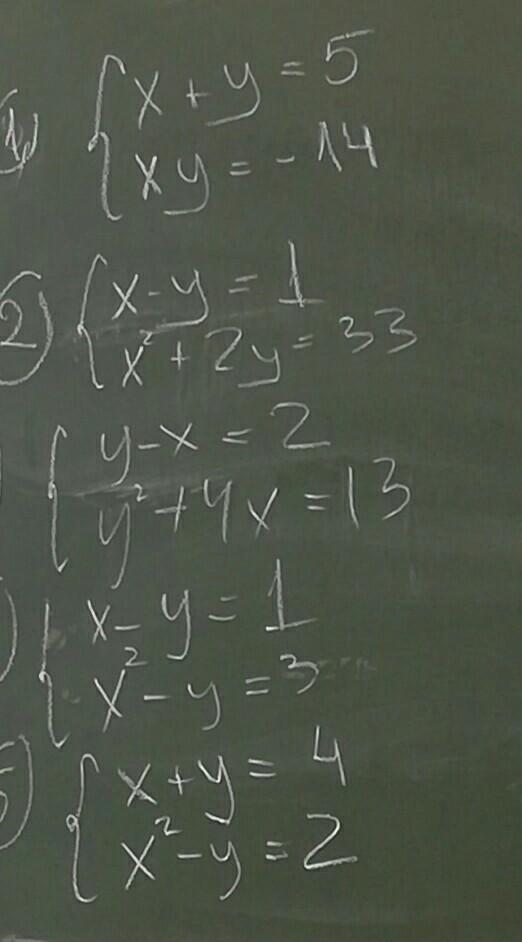 1) x + y = 5
xy = - 14
2) x - y = 1
x² + 2y = 33
y - x = 2
y² + 4x = 13
) x - y = 1
x² - y = 3
5) x + y = 4
x² - y = 2